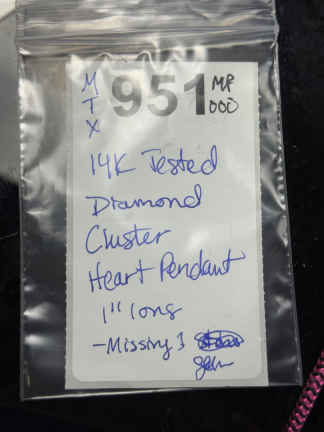 MTX 951 MP
000
14K Tested
Diamond
Cluster
Heart Pendant
1" long
-Missing 1